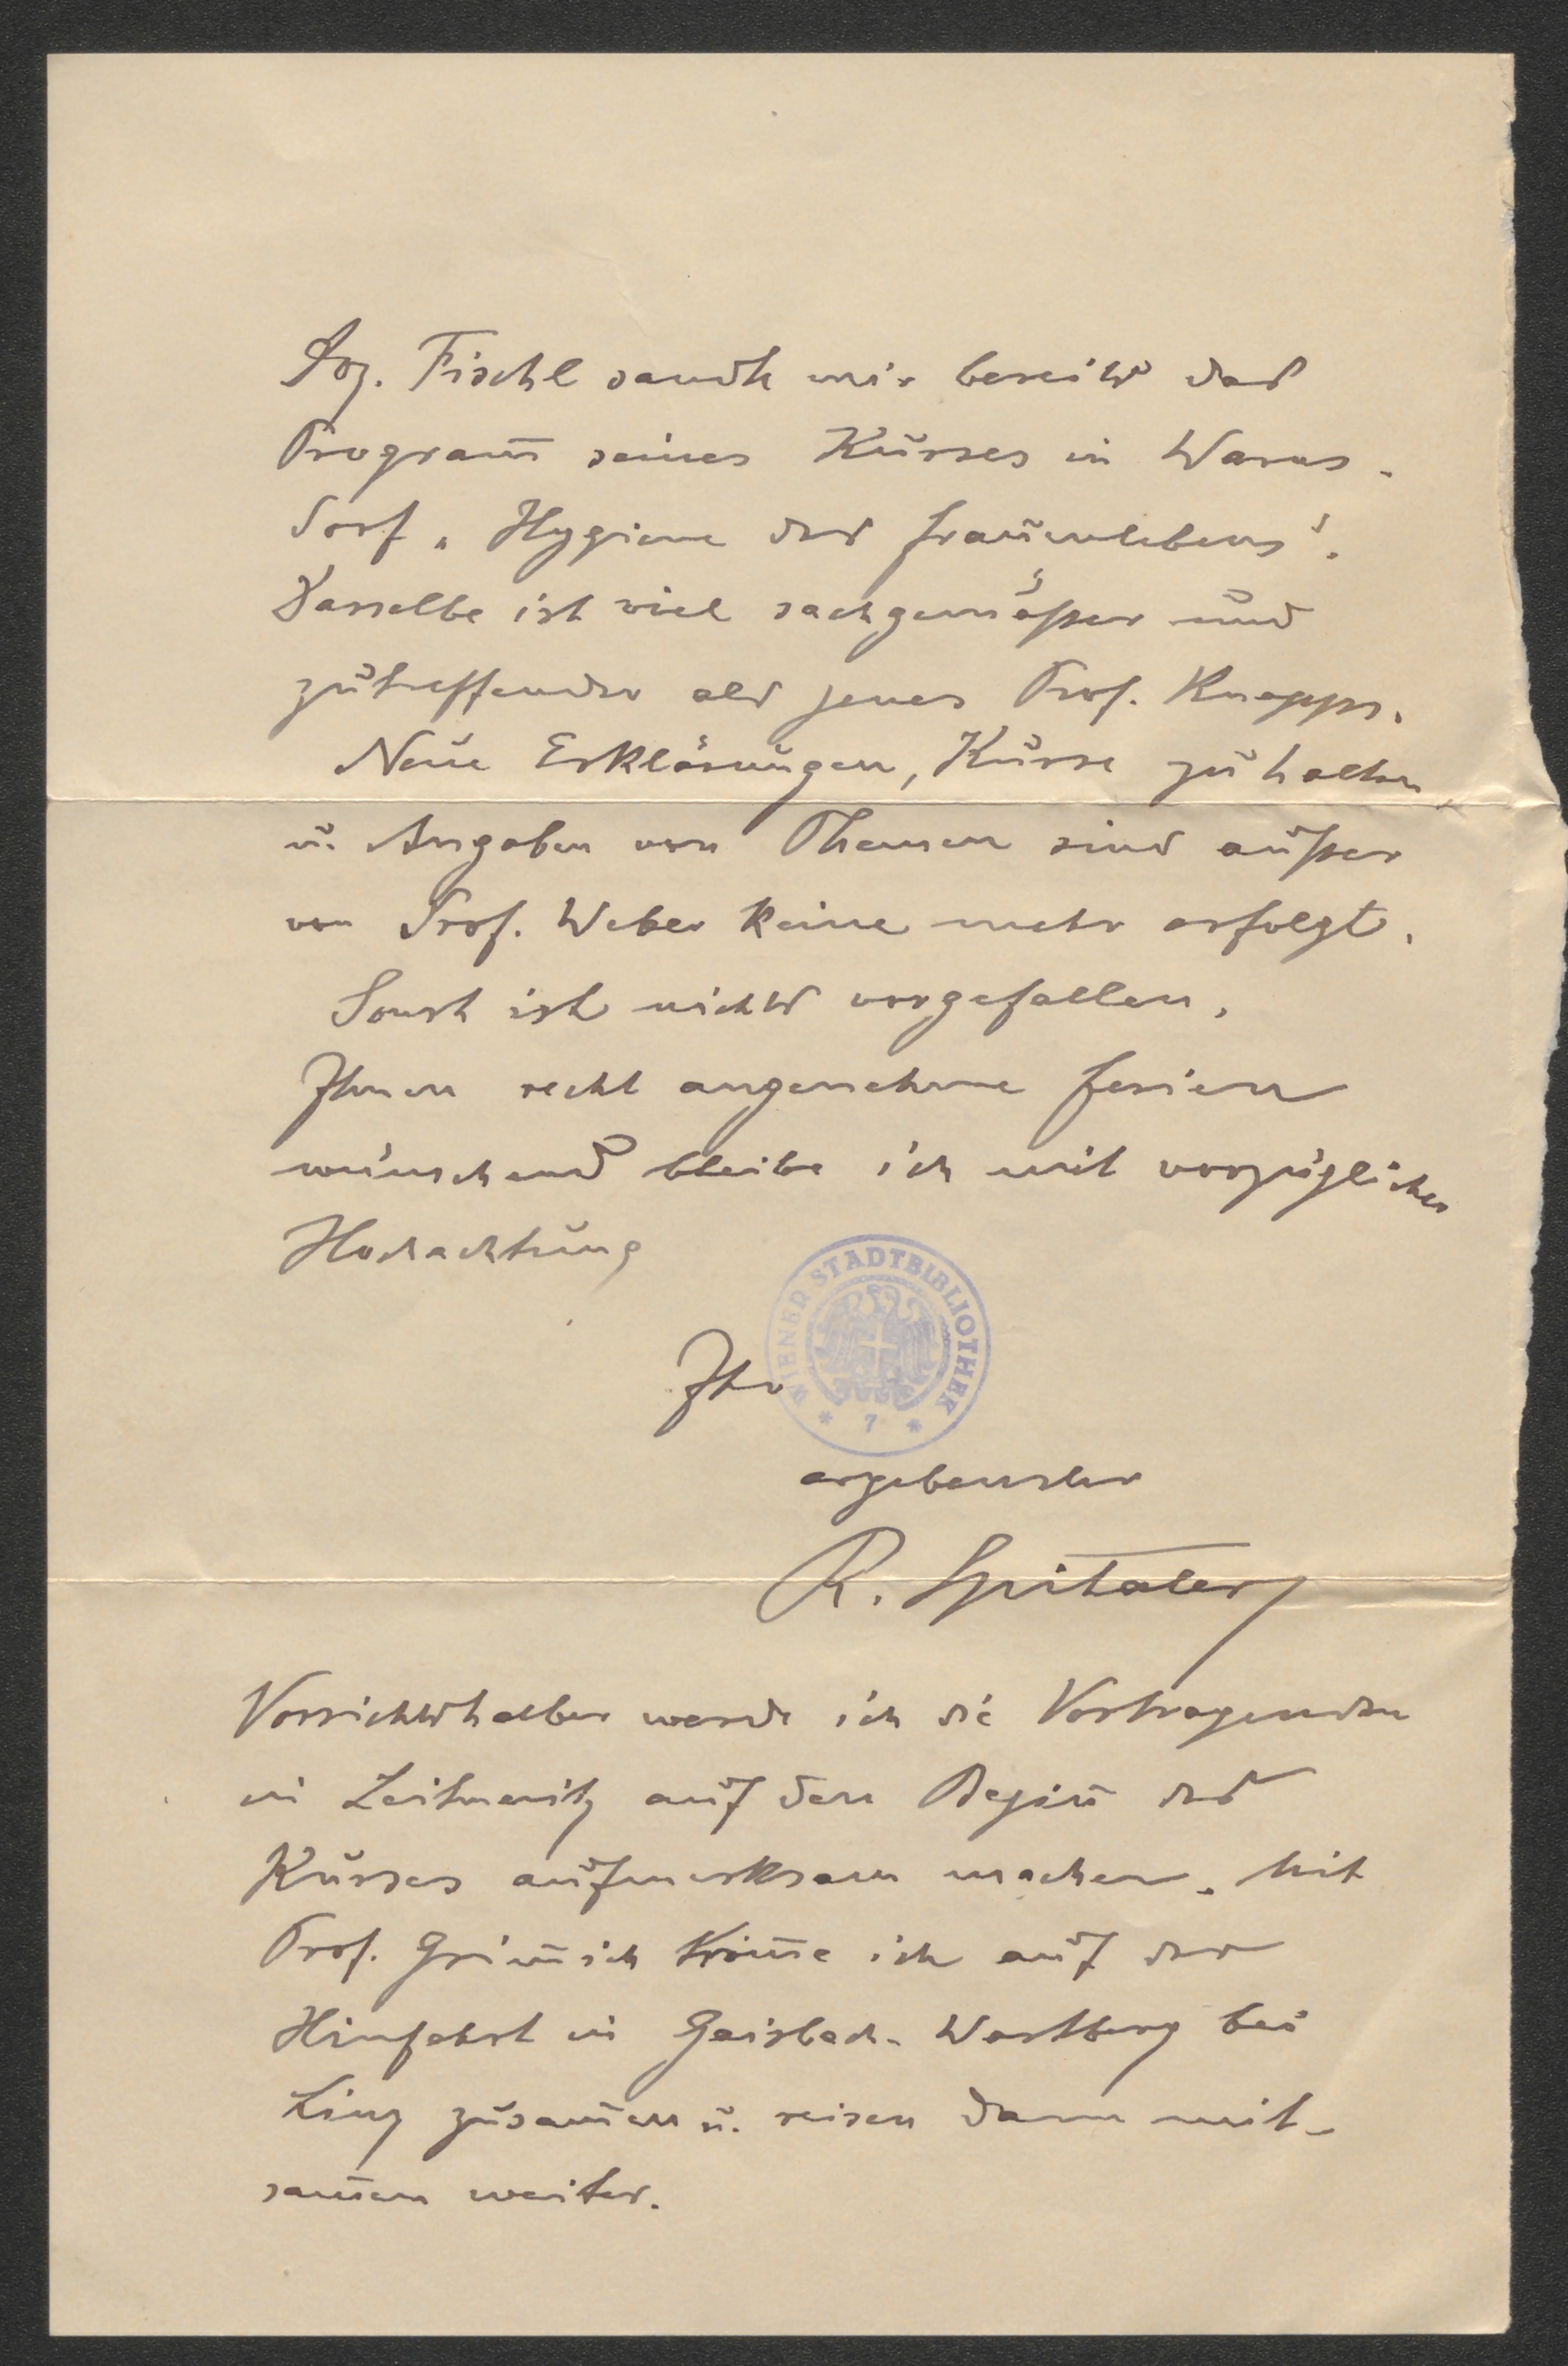 Doz. Fischl sandte mir bereits das
Program̅ seines Kurses in Warns-
dorf „Hygiene des Frauenlebens".
Dasselbe ist viel sachgemäßer und
zutreffender als jenes Prof. Knapps.
Neue Erklärungen, Kurse zu halten
u. Angaben von Themen sind außer
von Prof. Weber keine mehr erfolgt.
Sonst ist nichts vorgefallen.
Ihnen recht angenehme Ferien
wünschend bleibe ich mit vorzüglicher
Hochachtung
WIENER STADTBIBLIOTHEK
* 7 *
Ihr
ergebenster
R. Spitaler
Vorsichtshalber werde ich die Vortragenden
in Leitmeritz auf den Begin̅ des
Kurses aufmerksam machen. Mit
Prof. Grim̅ich kom̅e ich auf der
Hinfahrt in Gaisbach-Wartberg bei
Linz zusam̅en u. reisen dann mit-
sam̅en weiter.